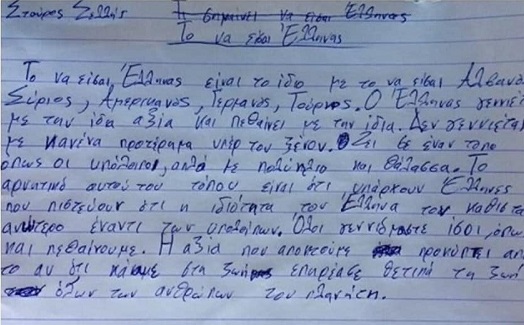 Σταύρος Σελλής Τι σημαίνει να είσαι Έλληνας
Το να είσαι Έλληνας
Το να είσαι Έλληνας είναι το ίδιο με το να είσαι Αλβανός
Σύριος, Αμερικανός, Γερμανός, Τούρκος. Ο Έλληνας γεννιέ
με την ίδια αξία και πεθαίνει με την ίδια. Δεν γεννιέται
με κανένα προτέρημα υπέρ του ξένου. Ζει σε έναν τόπο
όπως οι υπόλοιποι, απλά με πολύ ήλιο και θάλασσα. Το
αρνητικό αυτού του τόπου είναι ότι υπάρχουν Έλληνες
που πιστεύουν ότι η ιδιότητα του Έλληνα τον καθιστά
ανώτερο έναντι των υπολοίπων. Όλοι γεννιόμαστε ίσοι, όπω
και πεθαίνουμε. Η αξία που αποκτούμε προκύπτει απ
το αν ότι κάναμε στη ζωή επηρέασε θετικά τη ζωή
όλων των ανθρώπων του πλανήτη.